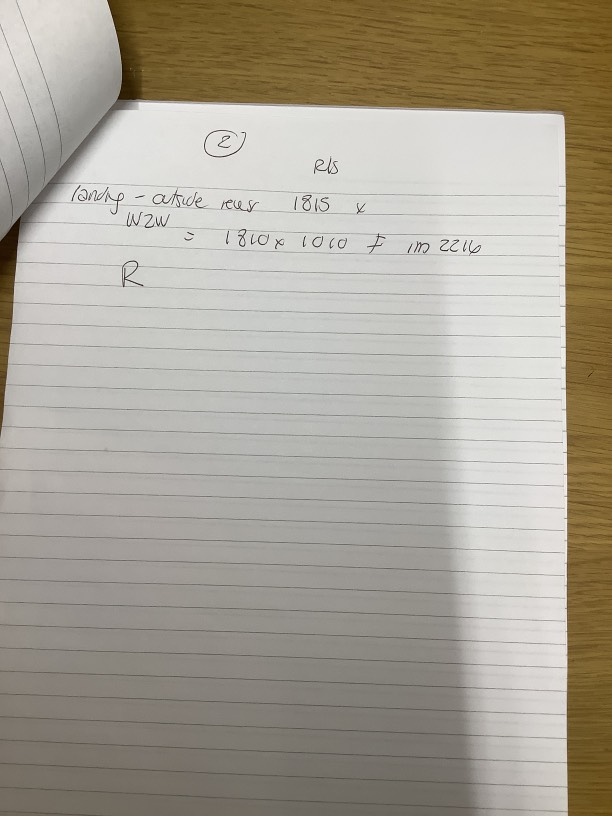 2
R/S
landing - outside reces 1815 x
W2W
= 1810 x 1010 F im 2216
R